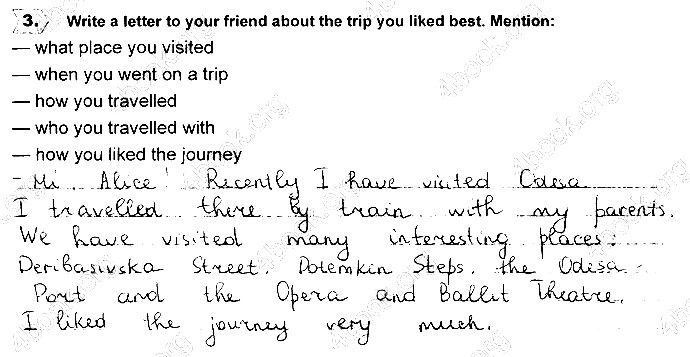 3. Write a letter to your friend about the trip you liked best. Mention:
— what place you visited
— when you went on a trip
— how you travelled
— who you travelled with
— how you liked the journey
Hi, Alice! Recently I have visited Odesa
I travelled there by train with my parents.
We have visited many interesting places:
Deribasivska Street, Potemkin Steps, the Odesa
Port and the Opera and Ballit Theatre.
I liked the journey very much.
4book.org
4book.org
4book.org
4book.org
4book.org